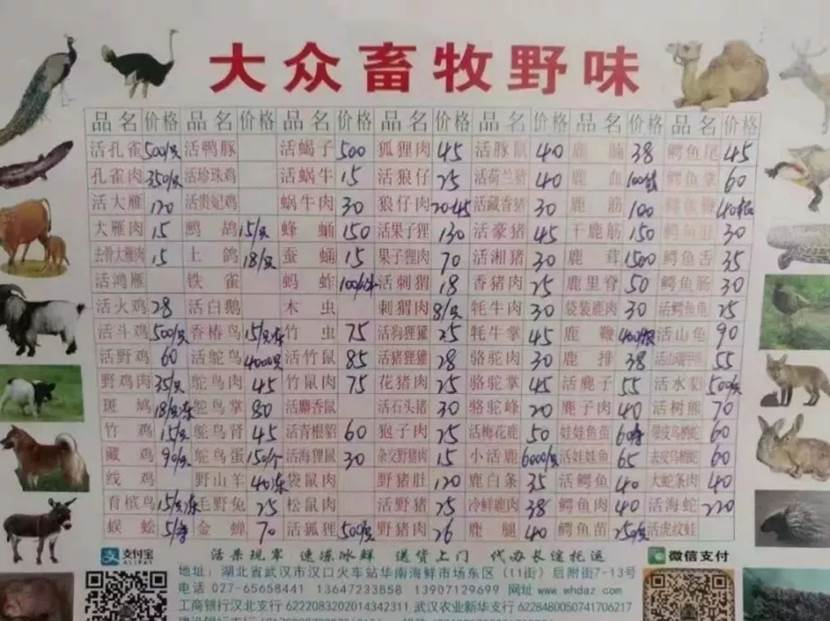 大众畜牧野味
品名 价格 品名 价格 品名 价格 品名 价格 品名 价格 品名 价格 品名 价格
活孔雀 500/只 活鸭豚 活蝎子 500 狐狸肉 45 活豚鼠 40 鹿 38 鳄鱼尾 45
孔雀肉 350/只 活珍珠鸡 活蜗牛 15 活狼仔 25 活荷兰猪 40 鹿血 鳄鱼掌 60
活大雁 120 活贵妃鸡 蜗牛肉 30 狼仔肉 活藏香猪 30 鹿筋 100 鳄鱼
大雁肉 15 鹧鸪 15/只 蜂蛹 150 活果子狸 130 活豪猪 45 干鹿筋 150 鳄鱼肚 30
去骨大雁肉 15 土鸽 18/只 蚕蛹 15 果子狸肉 70 活湘猪 30 鹿茸 1500 鳄鱼舌 35
活鸿雁 铁雀 蚂蚱 活刺猬 18 香猪肉 25 鹿里脊 50 鳄鱼肠 30
活火鸡 28 活白鹅 木虫 刺猬肉 8/只 牦牛肉 30 袋装鹿肉 30 活鳄鱼龟 25
活斗鸡 500/只 香椿鸟 竹虫 75 活狗狸獾 25 牦牛掌 45 鹿鞭 活山龟 90
活野鸡 60 活鸵鸟 4000/只 活竹鼠 85 活猪狸獾 28 骆驼肉 30 鹿排 38 55
野鸡肉 35/只 鸵鸟肉 45 竹鼠肉 75 花猪肉 25 骆驼掌 45 活鹿子 55 活水 500/只
斑鸠 鸵鸟掌 80 活麝香鼠 活石头猪 30 骆驼峰 20 鹿子肉 40 活树熊 70
竹鸡 15/只 鸵鸟肾 45 活青根貂 60 狍子肉 25 活梅花鹿 50 娃娃鱼苗 60
藏鸡 90/只 鸵鸟蛋 150/个 活海狸鼠 30 杂交野猪肉 15 小活鹿 6000/只 活娃娃鱼 65 60
线鸡 野山羊 袋鼠肉 野猪肚 120 鹿白条 35 活鳄鱼 40 大蛇条肉 40
育槟鸟 毛野兔 25 松鼠肉 活野猪 25 冷鲜鹿肉 38 鳄鱼肉 40 活海蛇 220
蜈蚣 金蝉 70 活狐狸 500/只 野猪肉 26 鹿腿 40 鳄鱼苗 活虎纹蛙
活杀现宰 速冻冰鲜 送货上门 代办长途托运
支付宝
ALIPAY
微信支付
地址：湖北省武汉市汉口火车站华南海鲜市场东区（11街）后附街7-13号
电话 027-65658441 13647233858 13907129699 网址 www.whdaz.com
工商银行汉北支行 6222083202014342311 武汉农业新华支行 6228480050741706217